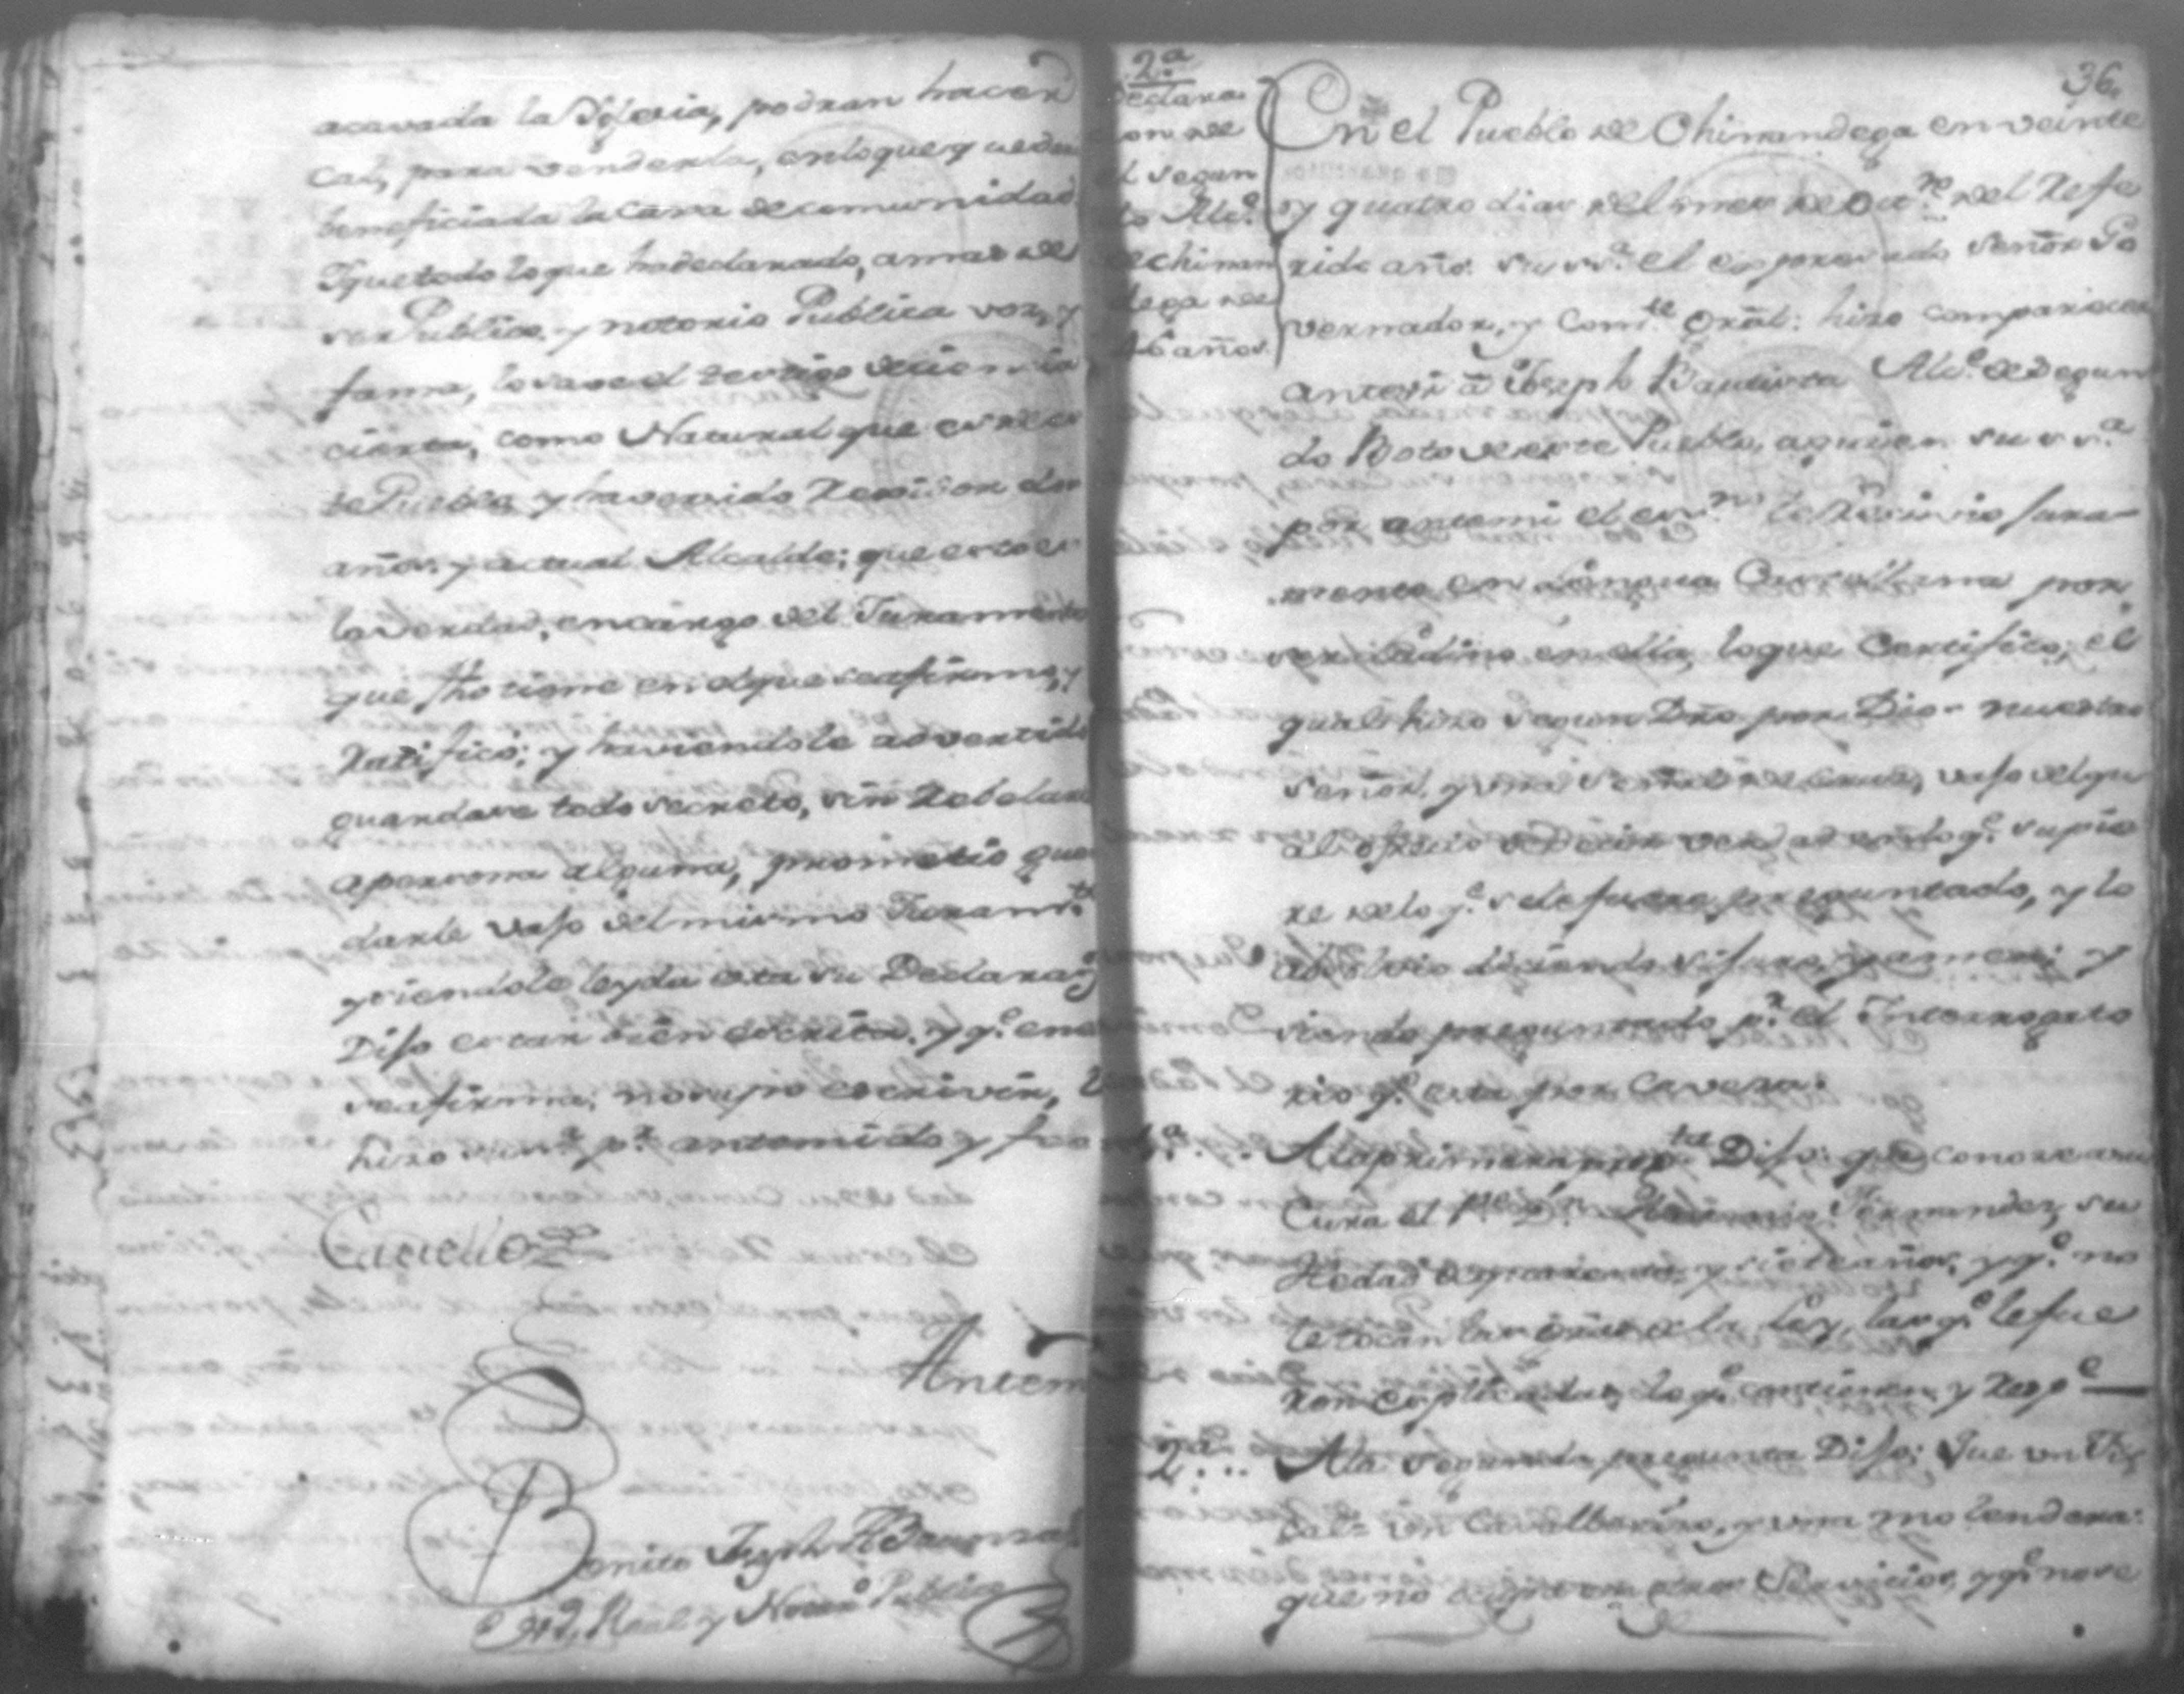 acavada la Yglecia, podran hacer
cal, para venderla, enloque quedara
beneficiada la Casa de comunidad
Yque todo loque ha declarado, amas de
ser Publico, y notorio Publica voz, y
fama, lo save el testigo deciencia
cierta, como Natural que es de es
te Pueblo, y ha servido Rexidor dos
años, y actual Alcalde; que esto es
la verdad, encargo del Juramento
que fho tiene en elque se afirmo, y
ratificó; y haviendole advertido
guardase todo secreto, sin Rebelarlo
apersona alguna, prometio guar
darle vajo del mismo Juram.to
y siendole leyda esta su Declaraz.n
Dijo estar bien escrita, y q.e enella
se afirma; no supo escrivir,
hizo su s.ria p.r antemi doy fee
Antemi
Benito Joseph
Es.no Real y Notar.o Publico
36,
2.a
Declara
cion de
el segun
do Alc.e
de chinan
dega de
46 años.
En el Pueblo de Chinandega en veinte
y quatro dias del mes de Oct.re del Refe
rido año. su s.ria el expresado Señor Go
vernador, y Com.te Gral: hizo comparecer
antesi â Joseph Bautista Alc.e de Segun
do Boto de este Pueblo, aquien su s.ria
por antemi el es.no le Recivio Jura-
mento en Lengua Castellana por
ser Ladino en ella, loque Certifico; el
qual hizo segun Dro por Dios nuestro
Señor, y una Señal de Cruz, vajo del qu
al ofrecio decir verdad enlo q.e supie
re delo q.e se le fuere preguntado, y lo
absolvio diciendo si Juro, y amen; y
siendo preguntado p.r el Interrogato
rio q.e esta por Caveza.
1.a.. Ala primera preg.ta Dijo: que conoce asu
Cura el P.e D.n Hernandez, su
Hedad de quarenta, y siete años, y q.e no
le tocan las grâles dela Ley, las q.e le fue
ron explicadas, lo q.e contienen y Resp.e
2.a.. Ala segunda pregunta Dijo; Que un Fis
cal= un Cavalleriso, y una molendera:
que no otros Servicios, y q.e nose